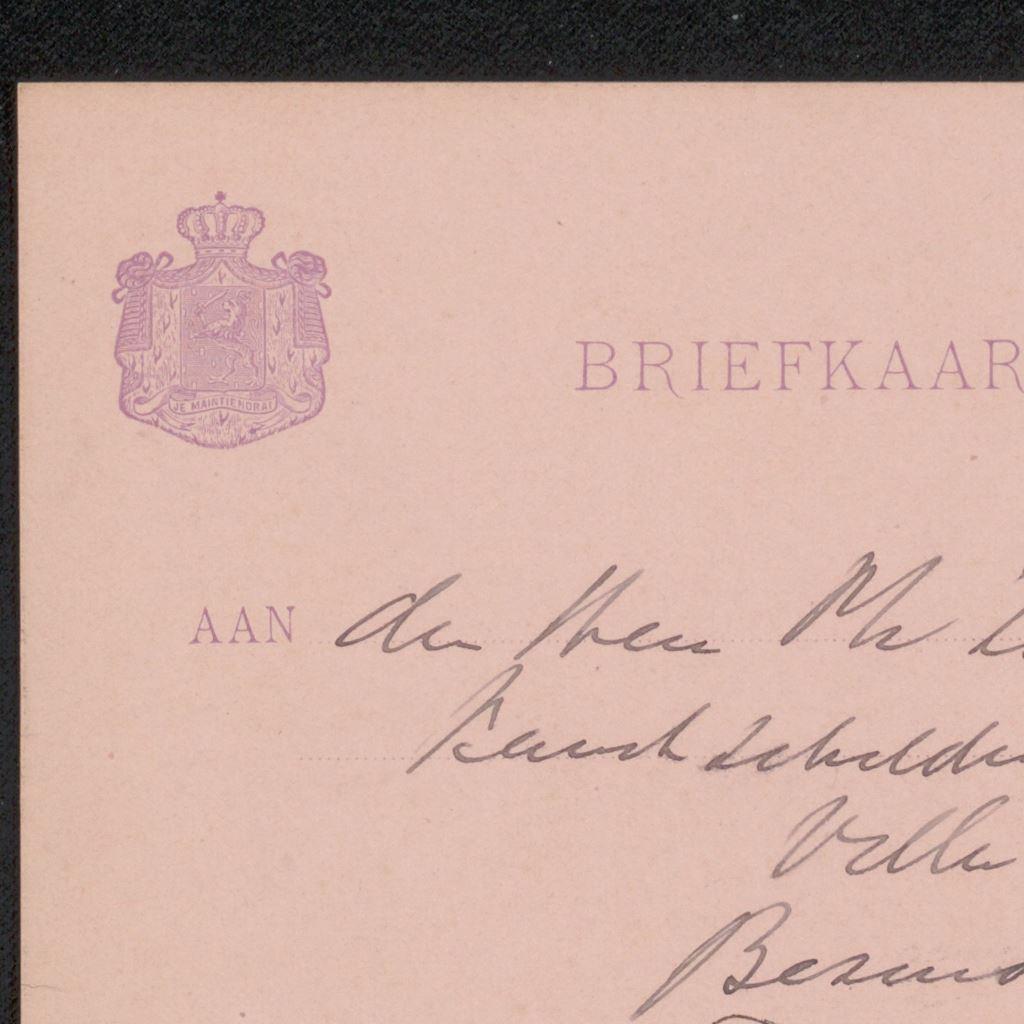 JE MAINTIENDRAI
BRIEFKAAR
AAN den Heer Ph
Kunstschilder
Villa